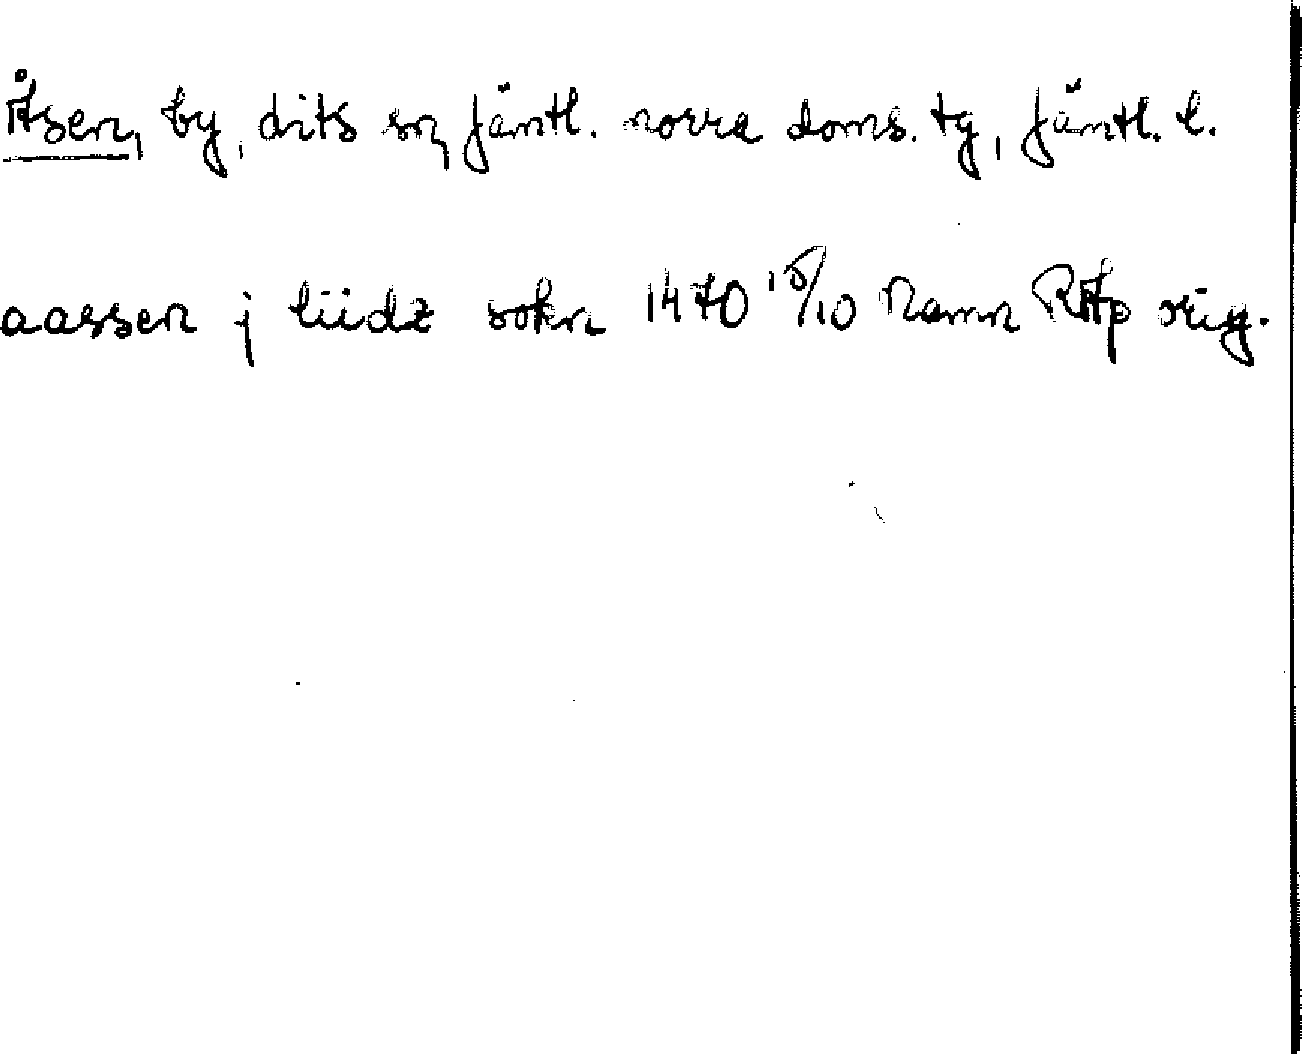 Åsen, by, Lits sn, Jämtl. norra doms. tg, Jämtl. l.
aassen j liidz sokn 1470 15/10 Ramn RAp orig.